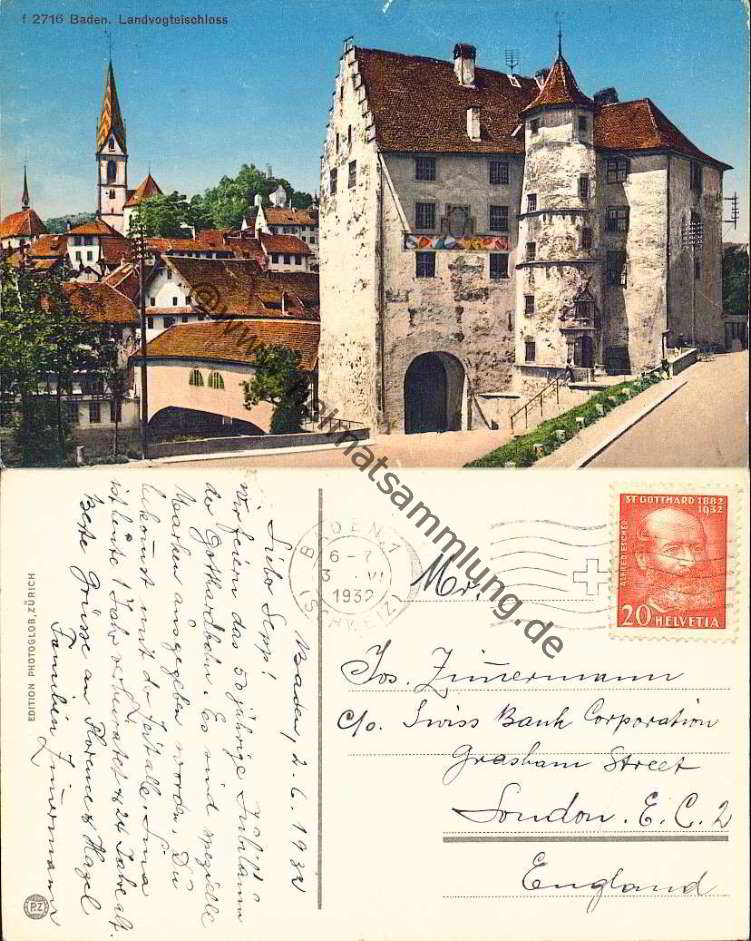 f 2716 Baden. Landvogteischloss
www.heimatsammlung.de
EDITION PHOTOGLOB, ZÜRICH
Baden, 2.6.1932
Lieber Sepp!
Wir feiern das 50 jährige Jubiläum
der Gotthardbahn. Es sind spezielle
Marken ausgegeben worden. Du
bekommst mit der Zeit alle.
ist heute 1 Jahr verheiratet & 24 Jahre alt.
Beste Grüsse an Florence & Hazel
Familie Zimmermann
PZ
BADEN 1
6-7
3 VI
1932
(SCHWEIZ)
ST. GOTTHARD 1882
1932
ALFRED ESCHER
20 HELVETIA
Mr.
Jos. Zimmermann
c/o. Swiss Bank Corporation
Gresham Street
London. E.C.2
England